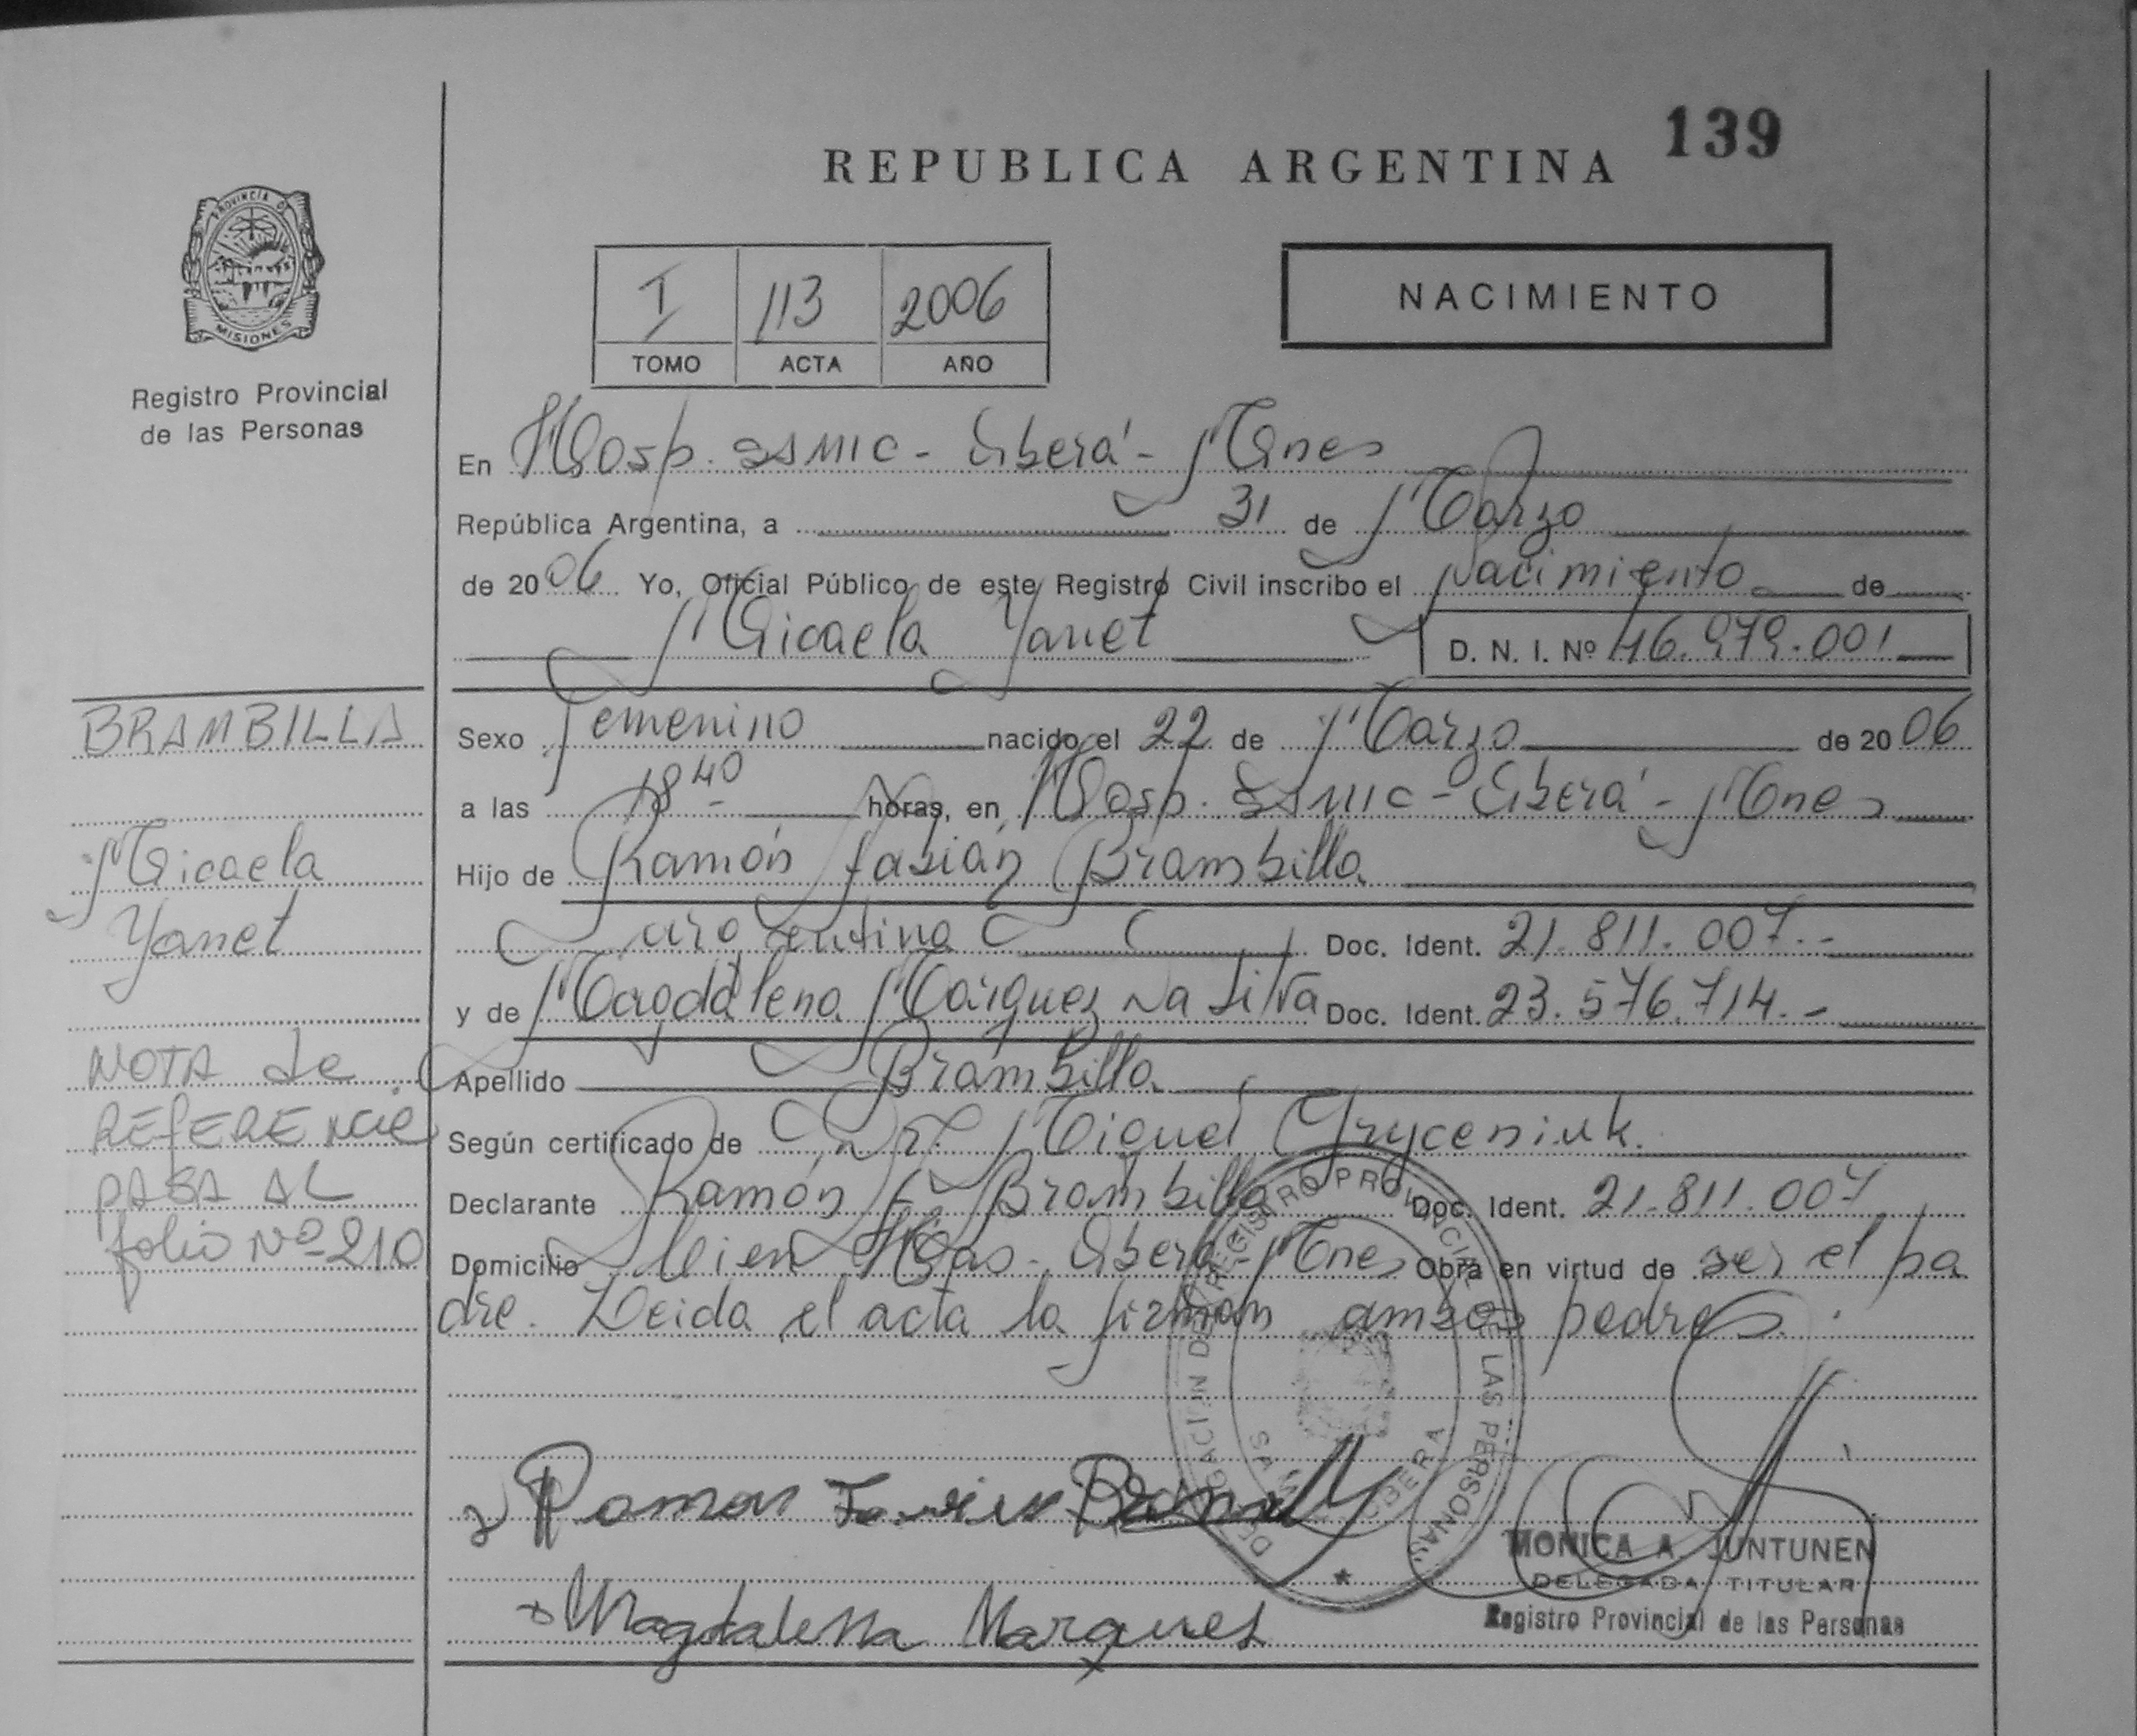 139
REPUBLICA ARGENTINA
PROVINCIA DE
MISIONES
Registro Provincial
de las Personas
I 113 2006
TOMO ACTA AÑO
NACIMIENTO
En Hosp. SAMIC - Oberá - Mnes
República Argentina, a 31 de Marzo
de 2006 Yo, Oficial Público de este Registro Civil inscribo el Nacimiento de
Micaela Yanet D. N. I. Nº 46.979.001
BRAMBILLA
Micaela
Yanet
NOTA de
REFERENcia
PASA AL
folio Nº 210
Sexo Femenino nacido el 22 de Marzo de 2006
a las 18 40 horas, en Hosp. SAMIC - Oberá - Mnes
Hijo de Ramón Fabián Brambilla
argentino Doc. Ident. 21.811.007.-
y de Magdalena Márquez Da Silva Doc. Ident. 23.576.714.-
Apellido Brambilla
Según certificado de Dr. Miguel Gryceniuk.
Declarante Ramón F. Brambilla Doc. Ident. 21.811.007
Domicilio Oberá - Mnes Obra en virtud de ser el pa
dre. Leida el acta la firman ambos padres.
DELEGACION DEL REGISTRO PROVINCIAL DE LAS PERSONAS
OBERA
Ramon
Magdalena Marques
MONICA A. JUNTUNEN
DELEGADA TITULAR
Registro Provincial de las Personas